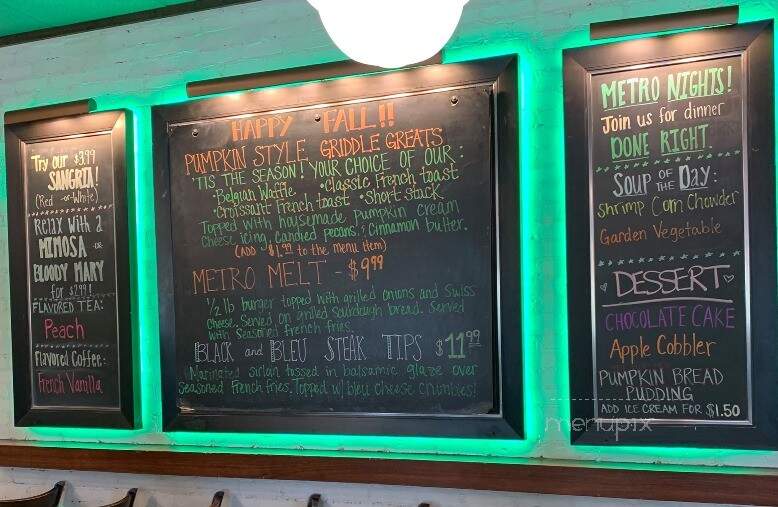 Try our $3.99
SANGRIA!
(Red -or- White)
Relax with a
MIMOSA -OR-
BLOODY MARY
for $2.99!
FLAVORED TEA:
Peach
Flavored Coffee:
French Vanilla
HAPPY FALL!!
PUMPKIN STYLE GRIDDLE GREATS
'TIS THE SEASON! YOUR CHOICE OF OUR:
•Belgian Waffle •Classic French toast
•Croissant French toast •Short stack
Topped with housemade pumpkin cream
cheese icing, candied pecans & cinnamon butter.
(ADD $1.99 to the menu item)
METRO MELT - $9.99
1/2 lb burger topped with grilled onions and Swiss
Cheese. Served on grilled sourdough bread. Served
with seasoned french fries.
BLACK and BLEU STEAK TIPS $11.99
Marinated sirloin tossed in balsamic glaze over
seasoned French fries. Topped w/ bleu cheese crumbles!
METRO NIGHTS!
Join us for dinner
DONE RIGHT.
SOUP OF THE DAY:
Shrimp Corn Chowder
Garden Vegetable
DESSERT
CHOCOLATE CAKE
Apple Cobbler
PUMPKIN BREAD
PUDDING
ADD ICE CREAM FOR $1.50
menupix